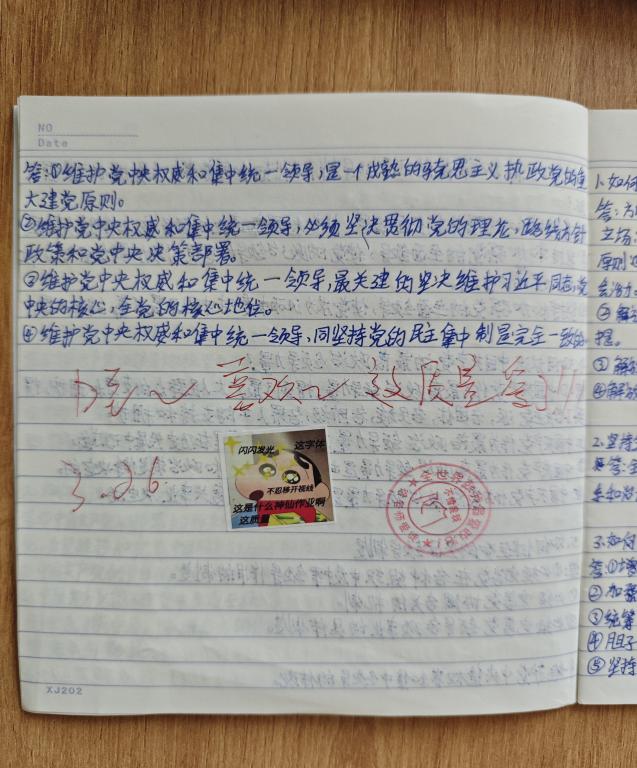 NO
Date
答:①维护党中央权威和集中统一领导,是一个成熟的马克思主义执政党的重
大建党原则。
②维护党中央权威和集中统一领导,必须坚决贯彻党的理论,路线方针
政策和党中央决策部署。
③维护党中央权威和集中统一领导,最关建的坚决维护习近平同志党
中央的核心,全党的核心地位。
④维护党中央权威和集中统一领导,同坚持党的民主集中制是完全一致的
喜欢~
质量
3.26
闪闪发光
这字体
不忍移开视线
这是什么神仙作业啊
这质量
XJ202
1.如何
答:为
立场
原则
②解
提。
③解放
④解放
2.坚持
答:
3.如何
答:①
②加
③统筹
④胆子
⑤坚持